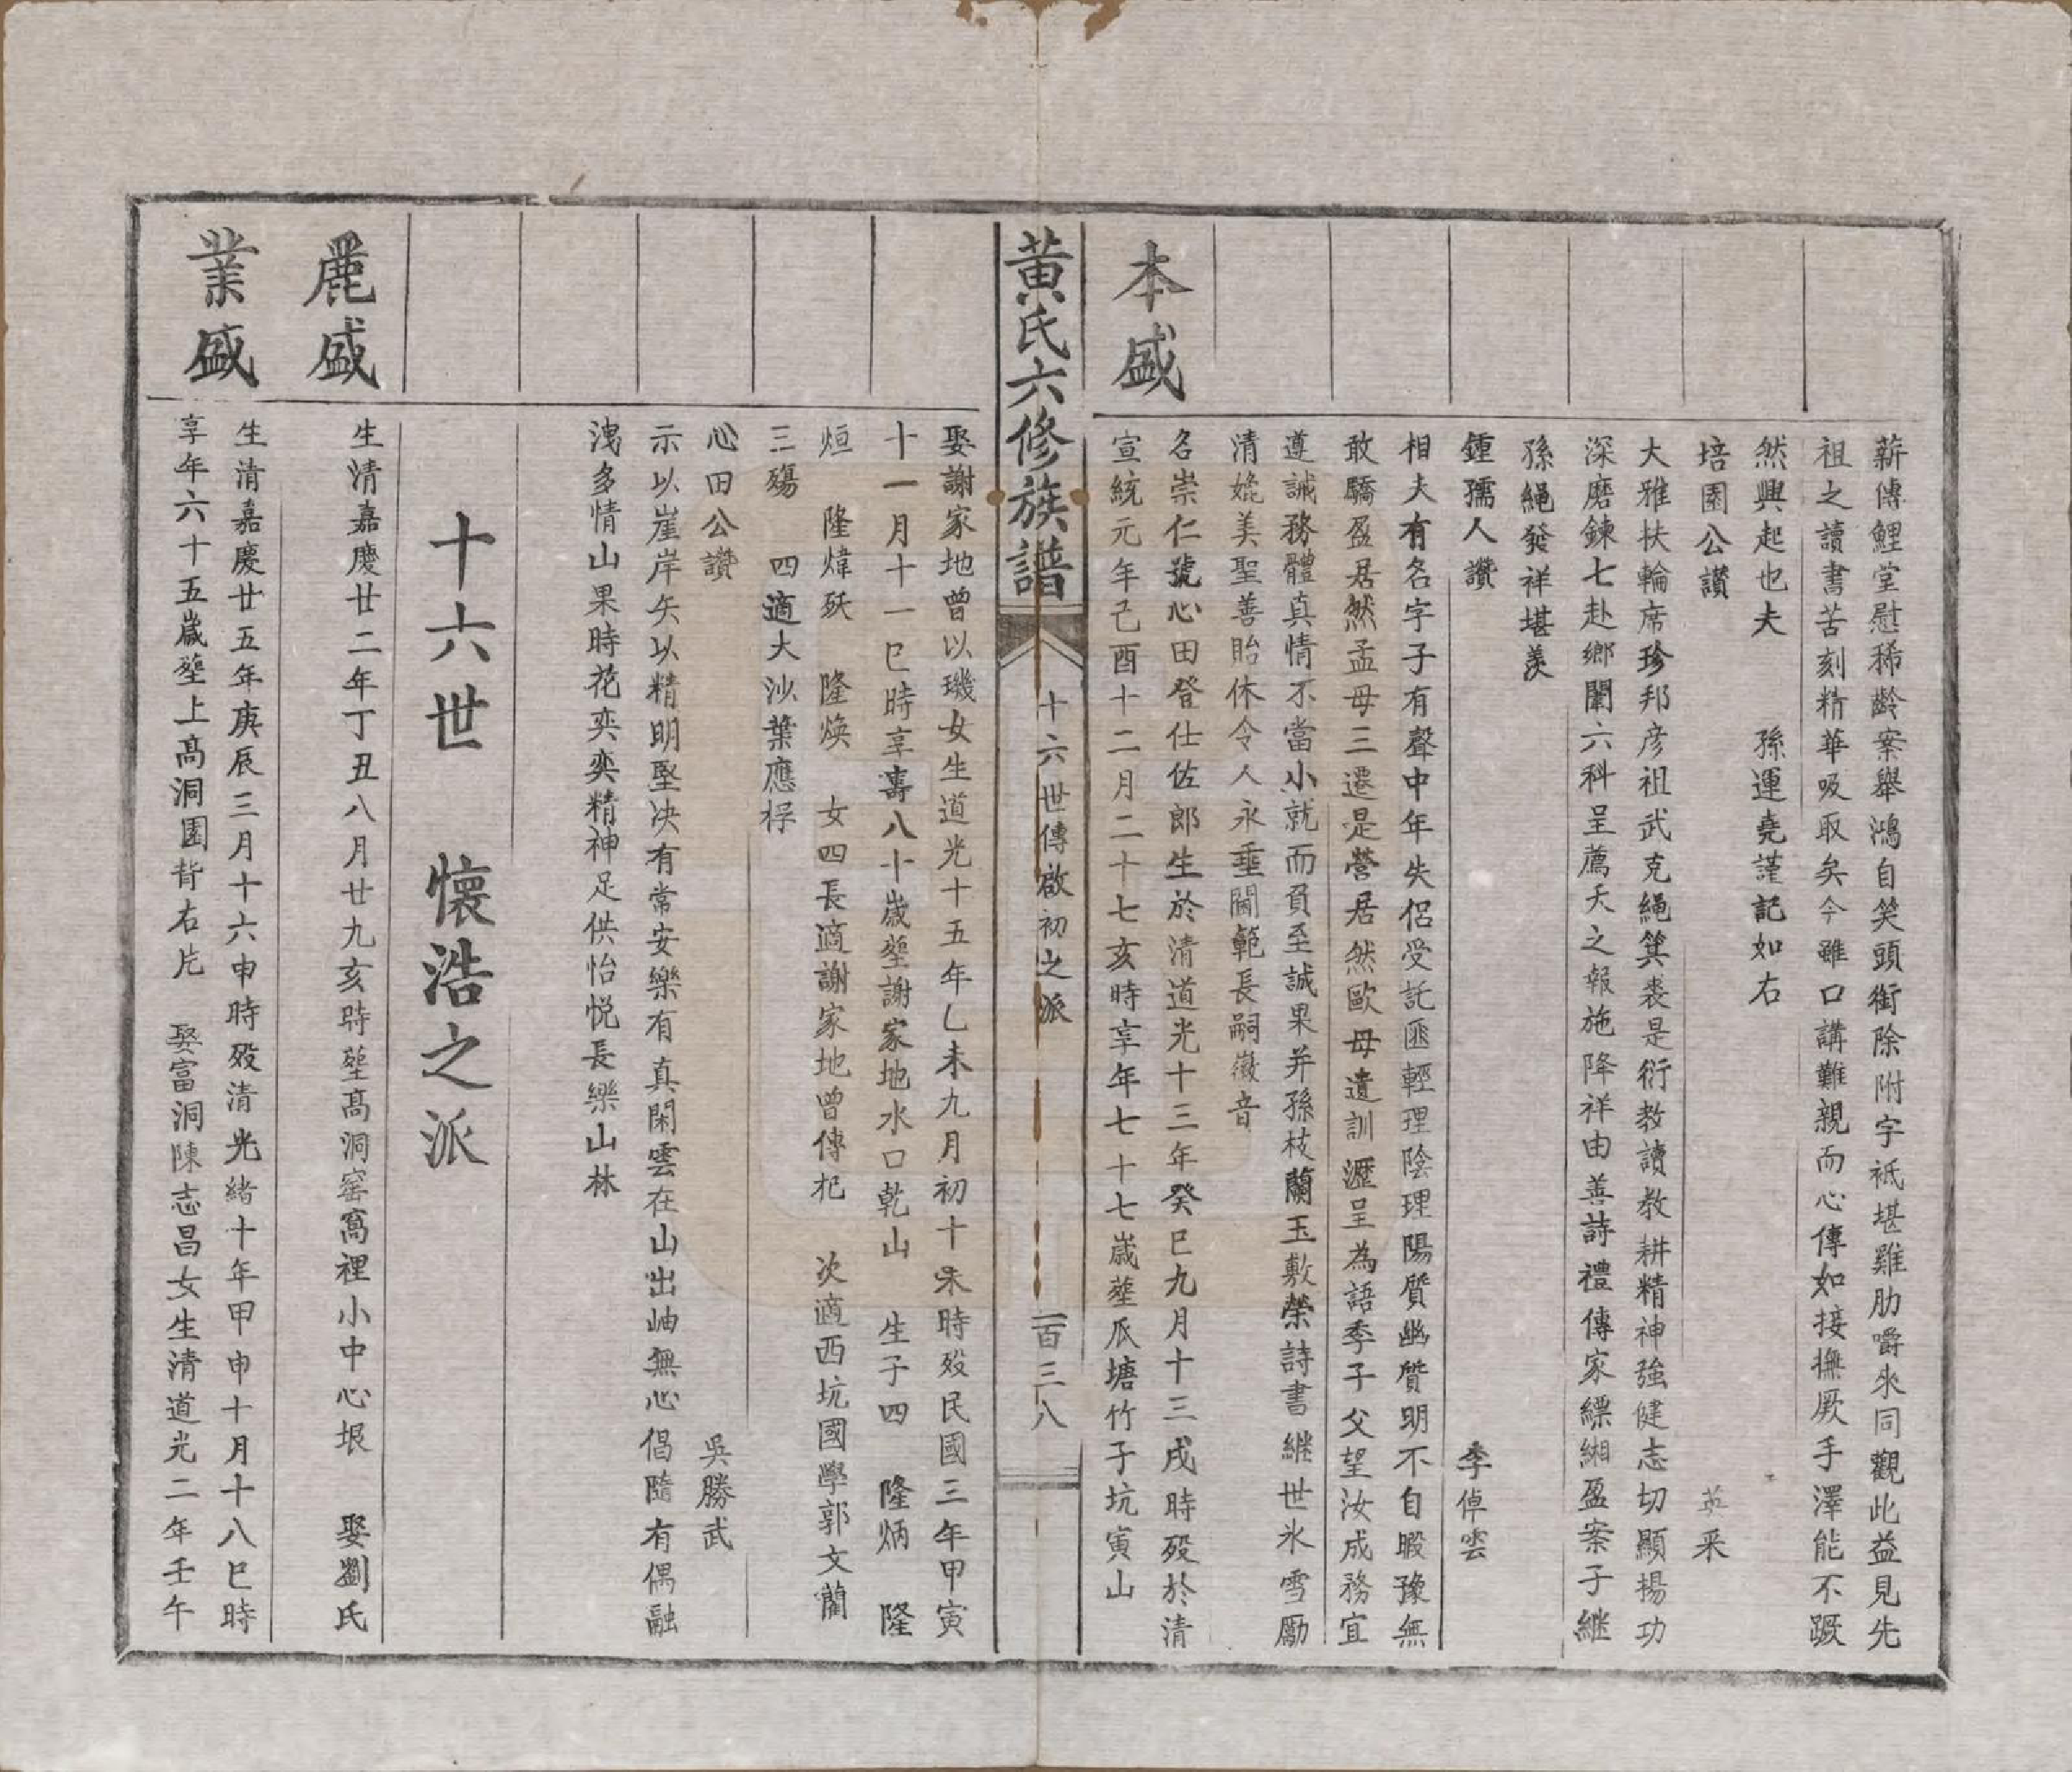 薪傳鯉堂慰稀齡案舉鴻自笑頭銜除附字祇堪雞肋嚼來同觀此益見先
祖之讀書苦刻精華吸取矣今雖口講難親而心傳如接撫厥手澤能不蹶
然興起也夫　　孫運堯謹記如右
培園公讃　　英采
大雅扶輪席珍邦彦祖武克繩箕裘是衍教讀教耕精神強健志切顯揚功
深磨鍊七赴鄉闈六科呈薦天之報施降祥由善詩禮傳家縹緗盈案子繼
孫繩發祥堪羨
鍾孺人讚　　李倬雲
相夫有名字子有聲中年失侶受託匪輕理陰理陽質幽質明不自暇豫無
敢驕盈居然孟母三遷是營居然歐母遺訓瀝呈為語季子父望汝成務宜
遵誡務體真情不當小就而負至誠果并孫枝蘭玉敷榮詩書繼世氷雪勵
清媲美聖善貽休令人永垂閫範長嗣徽音
本盛
名崇仁號心田登仕佐郎生於清道光十三年癸巳九月十三戌時殁於清
宣統元年己酉十二月二十七亥時享年七十七嵗塟瓜塘竹子坑寅山
黃氏六修族譜　十六世傳啟初之派　一百三八
娶謝家地曾以璣女生道光十五年乚未九月初十未時殁民國三年甲寅
十一月十一巳時享壽八十嵗塟謝家地水口乾山　生子四　隆炳　隆
烜　隆煒殀　隆煥　女四長適謝家地曾傳杞　次適西坑國學郭文蘭
三殤　四適大沙葉應桴
心田公讚　　吳勝武
示以崖岸矢以精明堅决有常安樂有真閑雲在山出岫無心倡隨有偶融
洩多情山果時花奕奕精神足供怡悦長樂山林
十六世　懷浩之派
麗盛
生清嘉慶廿二年丁丑八月廿九亥時塟高洞窰窩裡小中心垠　娶劉氏
業盛
生清嘉慶廿五年庚辰三月十六申時殁清光緒十年甲申十月十八巳時
享年六十五嵗塟上高洞園背右片　娶富洞陳志昌女生清道光二年壬午